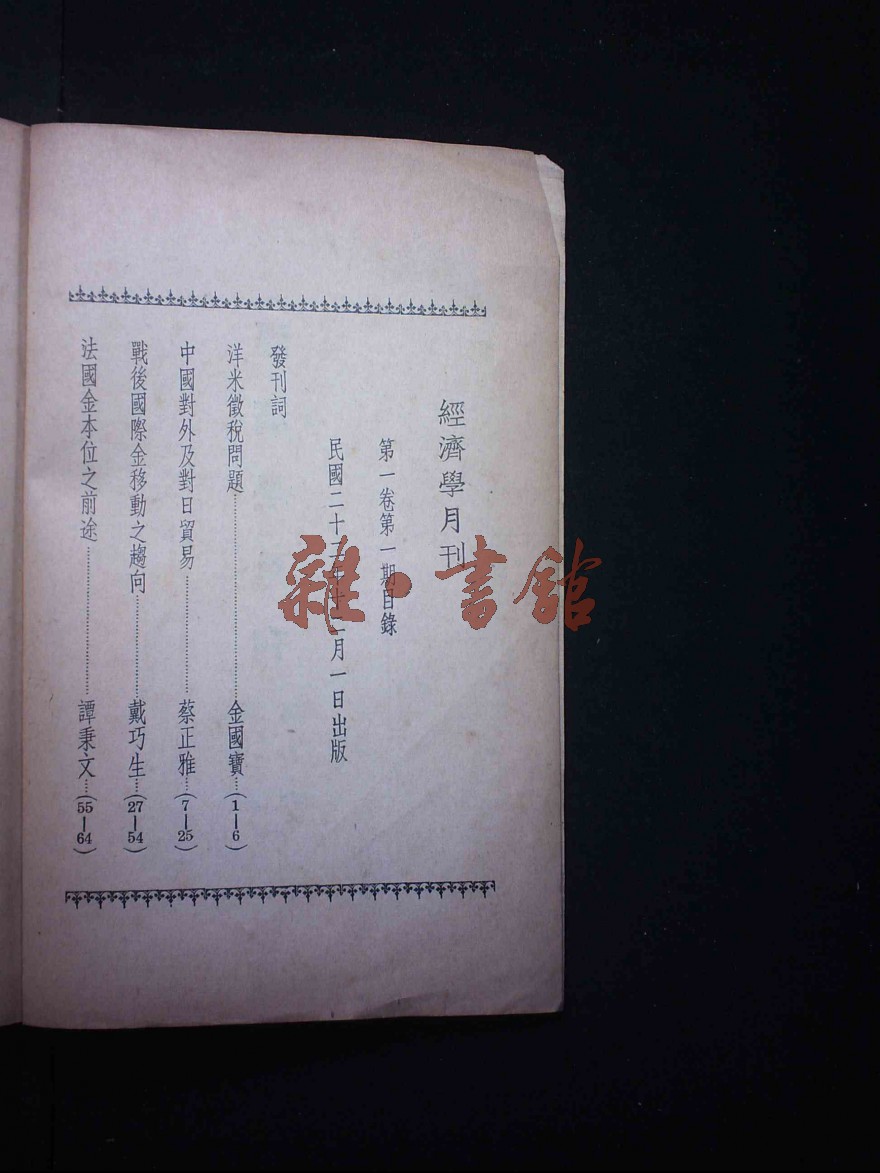 經濟學月刊
第一卷第一期目錄
民國二十二年十二月一日出版
發刊詞
洋米徵稅問題 金國寶 (1—6)
中國對外及對日貿易 蔡正雅 (7—25)
戰後國際金移動之趨向 戴巧生 (27—54)
法國金本位之前途 譚秉文 (55—64)
雜·書館